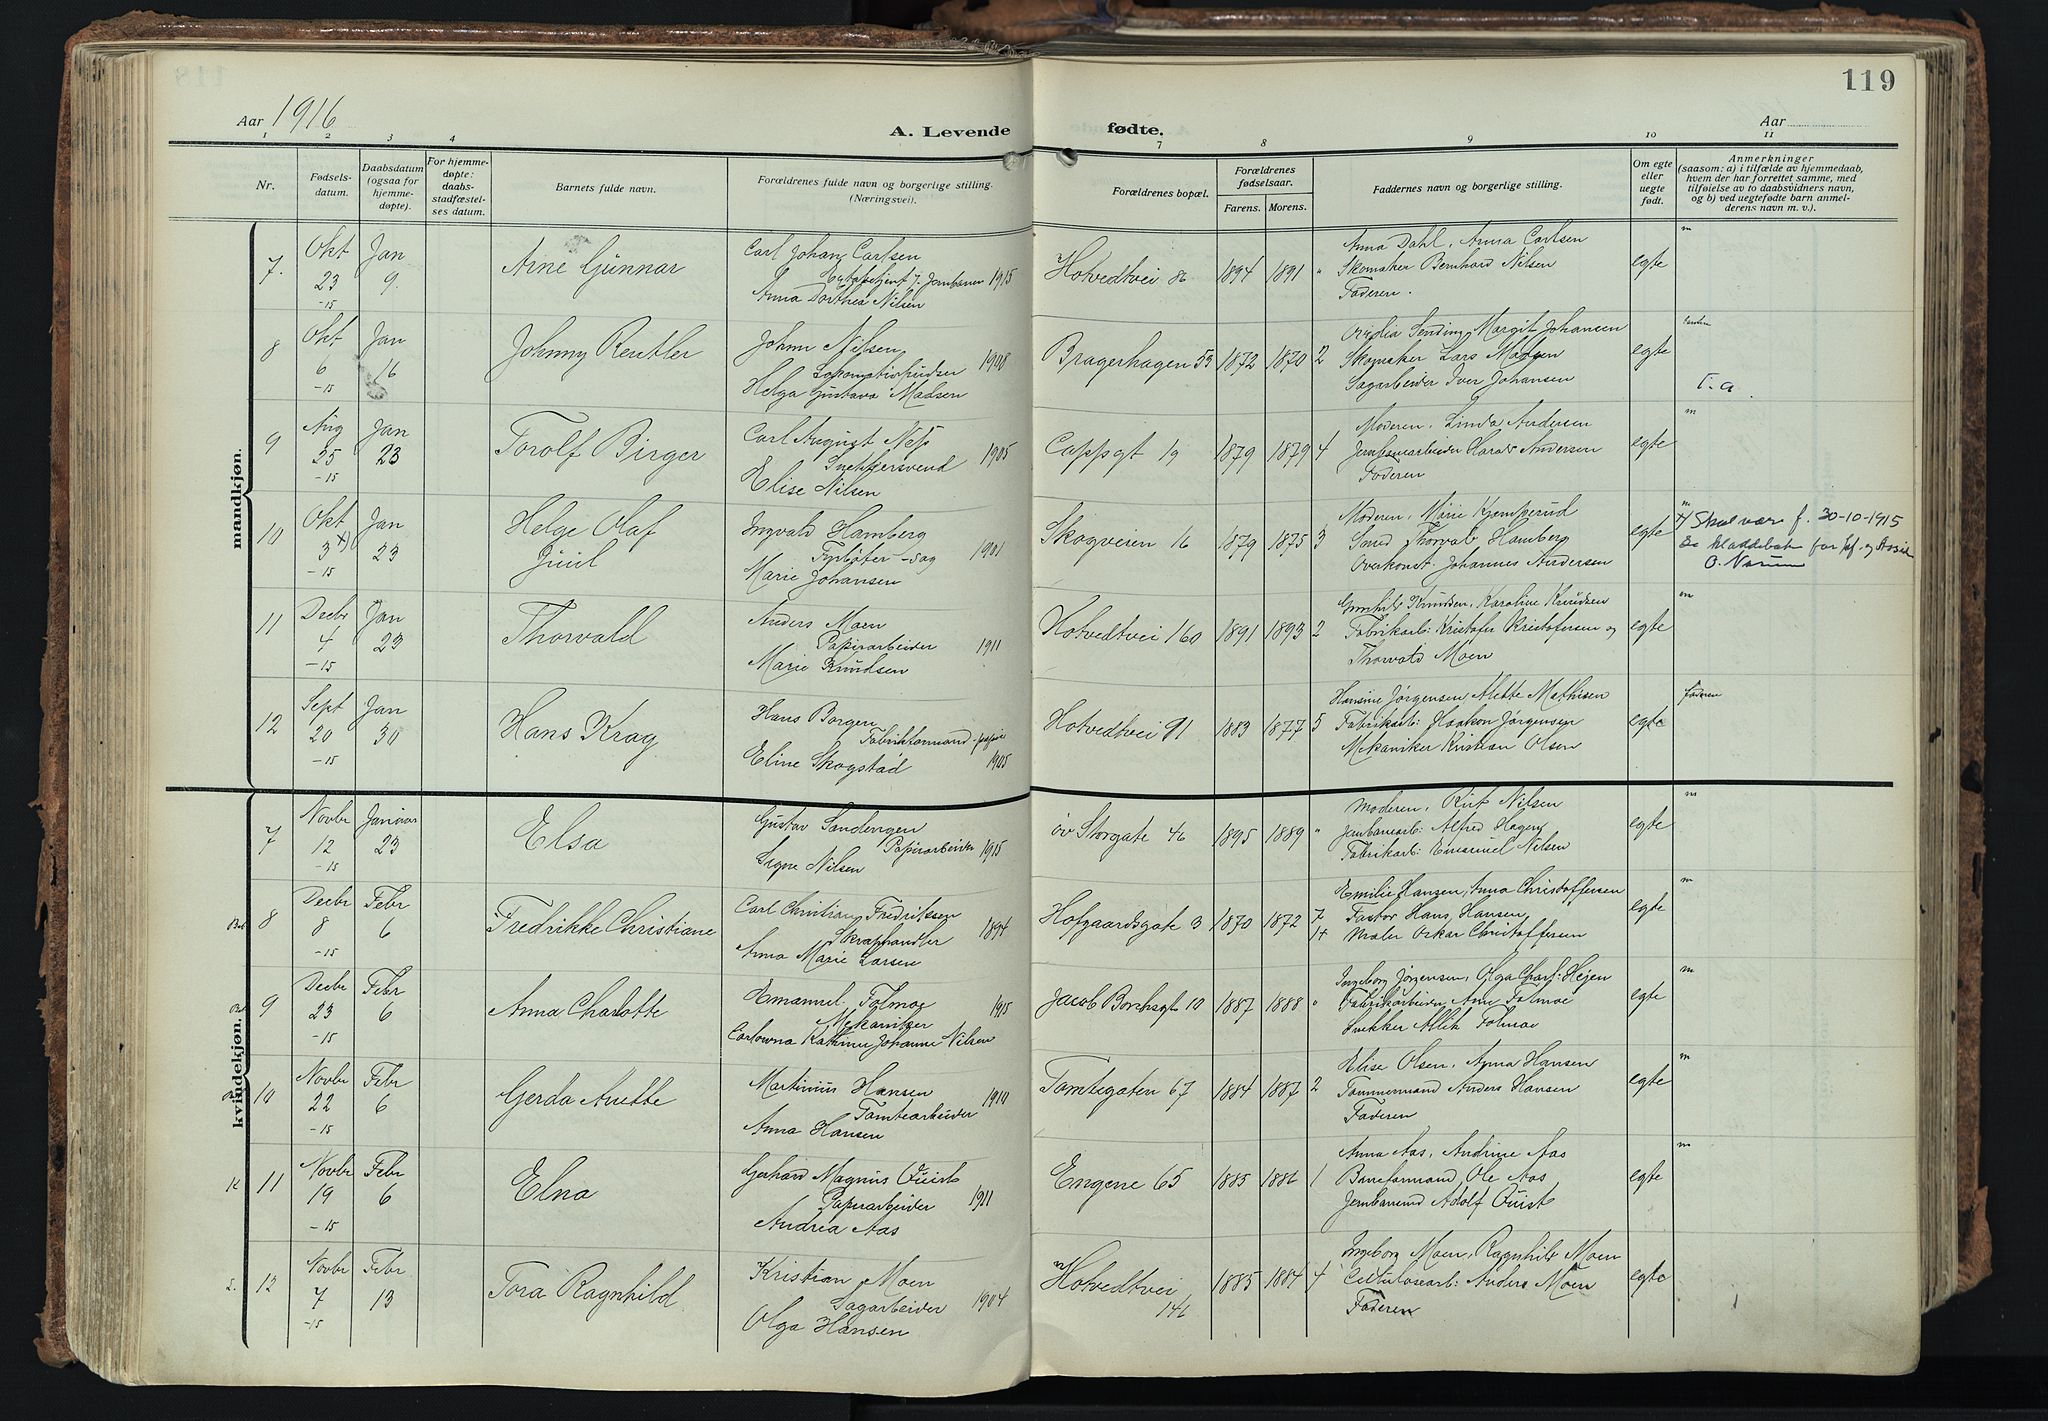 119
Aar 1916
A. Levende fødte.
Aar
1 2 3 4 7 8 9 10 11
Nr.
Fødsels-
datum.
Daabsdatum
(ogsaa for
hjemme-
døpte).
For hjemme-
døpte:
daabs-
stadfæstel-
ses datum.
Barnets fulde navn.
Forældrenes fulde navn og borgerlige stilling.
(Næringsvei).
Forældrenes bopæl.
Forældrenes
fødselsaar.
Farens. Morens.
Faddernes navn og borgerlige stilling.
Om egte
eller
uegte
født.
Anmerkninger
(saasom: a) i tilfælde av hjemmedaab,
hvem der har forrettet samme, med
tilføielse av to daabsvidners navn,
og b) ved uegtefødte barn anmel-
derens navn m. v.).
mandkjøn.
7. Okt 23 -15 Jan 9. Arne Gunnar
Carl Johan Carlsen
1915
Anna Dorthea Nilsen
Hotvedtvei 86 1894 1891 "
Anna Dahl, Anna Carlsen
Skomaker Bernhard Nilsen
Faderen.
egte m
8 Okt 6 -15 Jan 16 Johnny Rentler
Johan Nilsen
Lokomotivpudser 1908
Helga Gustava Madsen
Bragerhagen 53 1872 1870 2
Margit Johansen
Skomaker Lars Madsen
Sagarbeider Iver Johansen
egte
9 Aug 25 -15 Jan 23 Torolf Birger
Carl August Næss
Snekkersvend 1905
Elise Nilsen
Cappgt 19 1879 1879 4
Moderen, Linda Andersen
Jernbanearbeider Harald Andersen
Faderen
egte m
10 Okt 3 x) -15 Jan 23 Helge Olaf
Juul
Ingvald Hamberg
Fyrbøter - sag 1901
Marie Johansen
Skogveien 16 1879 1875 3
Moderen, Marie Kjemperud
Smed Thorvald Hamberg
Overkonst. Johannes Andersen
egte m
x) Skal være f. 30-10-1915
Se kladdebok for
11 Decbr 4 -15 Jan 23 Thorvald
Anders Moen
Papirarbeider 1911
Marie Knudsen
Hotvedtvei 160 1891 1893 2
Gunhild Knudsen, Karoline Knudsen
Fabrikarb: Kristofer Kristofersen og
Thorvald Moen
egte m
12 Sept 20 -15 Jan 30 Hans Krag
Hans Borgen
Fabrikformand - papir
1905
Eline Skogstad
Hotvedtvei 91 1883 1877 5
Hansine Jørgensen, Alette Mathisen
Fabrikarb: Haakon Jørgensen
Mekaniker Kristian Olsen
egte faderen
kvindekjøn.
7 Novbr 12 -15 Januar 23 Elsa
Gustav Sandengen
Papirarbeider 1915
Signe Nilsen
øv Storgate 46 1895 1889 "
Moderen, Rut Nilsen
Jernbanearb: Alfred Hagen
Fabrikarb: Emanuel Nilsen
egte m
8 Decbr 8 -15 Febr 6 Fredrikke Christiane
Carl Christian Fredriksen
Skraphandler 1894
Anna Marie Larsen
Hofgaardsgate 3 1870 1872 7
1+
Emilie Hansen, Anna Christoffersen
Hans Hansen
Maler Oskar Christoffersen
egte m
9 Decbr 23 -15 Febr 6 Anna Charlotte
Emanuel Folmoe
Mekaniker 1915
Carlowna Kathrine Johanne Nilsen
Jacob Borchsgt 10 1887 1888 "
Ingeborg Jørgensen, Olga Charl: Hejen
Fabrikarbeider Arne Folmoe
Snekker Folmoe
egte m
10 Novbr 22 -15 Febr 6 Gerda Anette
Martinius Hansen
Tomtearbeider 1910
Anna Hansen
Tomtegaten 67 1884 1887 2
Elise Olsen, Anna Hansen
Tømmermand Anders Hansen
Faderen
egte m
K 11 Novbr 19 -15 Febr 6 Elna
Gerhard Magnus Quist
Papirarbeider 1911
Andrea Aas
Engene 65 1885 1886 1
Anna Aas, Andrine Aas
Baneformand Ole Aas
Jernbanemd Adolf Quist
egte m
S. 12 Novbr 7 -15 Febr 13 Tora Ragnhild
Kristian Moen
Sagarbeider 1904
Olga Hansen
Hotvedtvei
146 1885 1884 4
Ingeborg Moen, Ragnhild Moen
Cellulosearb: Anders Moen
Faderen
egte